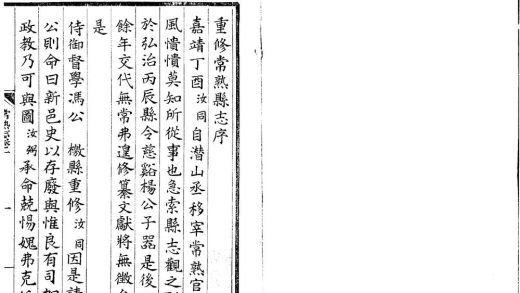 重修常熟縣志序
嘉靖丁酉汝同自潛山丞移宰常熟官
風憒憒莫知所從事也急索縣志觀之
於弘治丙辰縣令慈谿楊公子器是後
餘年交代無常弗遑修纂文獻將無徵
是
侍御督學馮公 檄縣重修汝同因是請
公則命曰新邑史以存廢與惟良有司
政教乃可與圖汝弼承命兢惕媿弗克
一